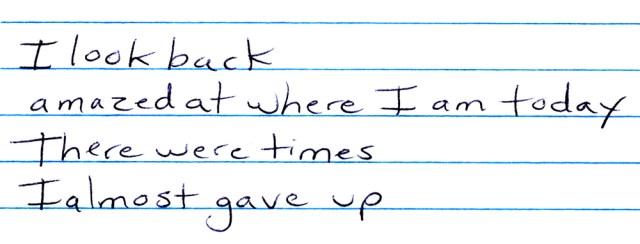 I look back
amazed at where I am today
There were times
I almost gave up